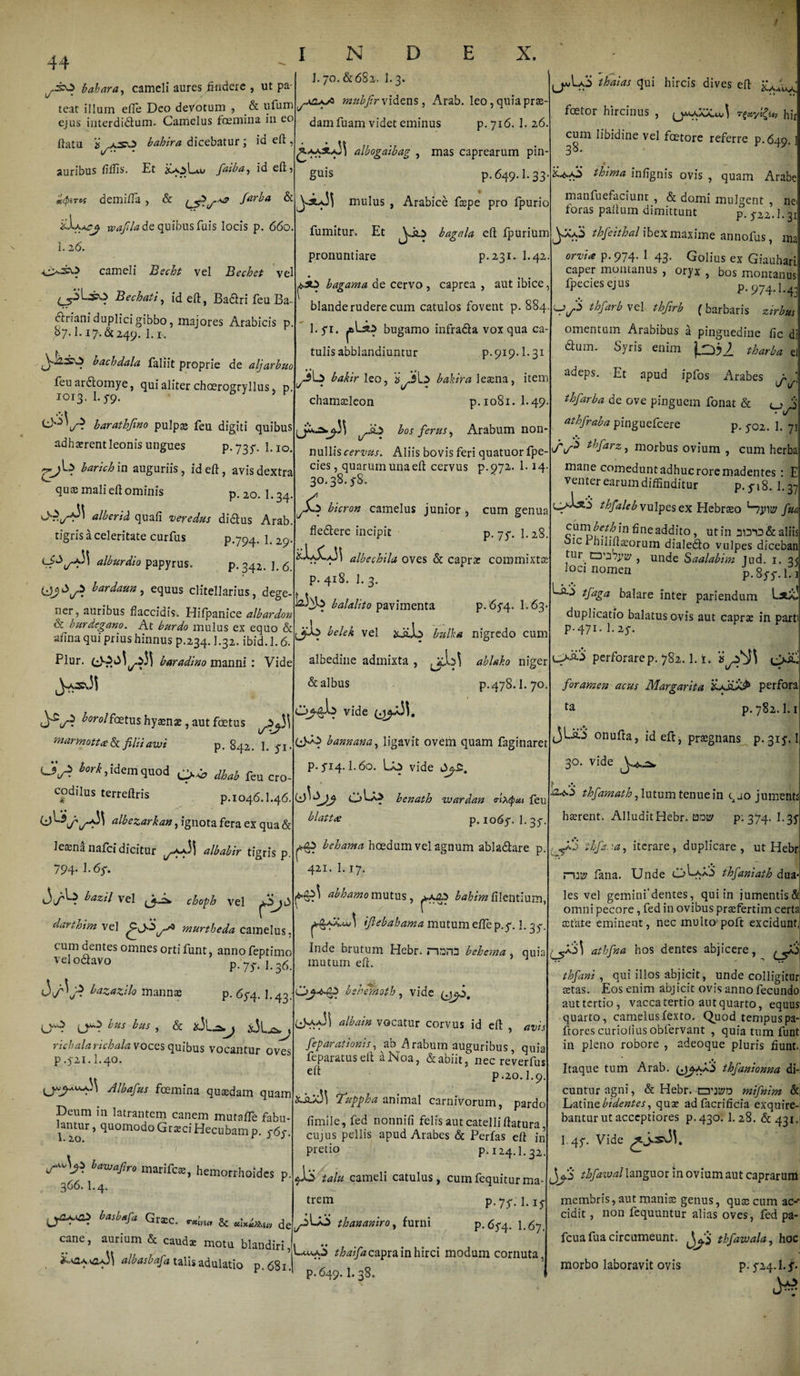 44
I N D E X.
بحر bahara, cameli aures findere , ut pa-
teat illum esse Deo devotum , & usum
ejus interdictum. Camelus fœmina in eo
statu بحيرة bahira dicebatur ; id est ,
auribus fissis. Et سايبة saiba, id est ,
ἄφετος demissa , & sarba &
وصيلة wasila de quibus suis locis p. 660.
l. 26.
بخت cameli Becht vel Bechet vel
بخاتي Bechati, id est, Bactri seu Ba-
ctriani duplici gibbo, majores Arabicis p.
87. l. 17. & 249. l. 1.
bachdala saliit proprie de aljarbuo
seu arctomye, qui aliter chœrogryllus, p.
1013. l. 59.
برثن barathsino pulpæ seu digiti quibus
adhærent leonis ungues p. 735. l. 10.
بارح barich in auguriis , id est , avis dextra
quæ mali est ominis p. 20. l. 34.
البريد alberid quasi veredus dictus Arab.
tigris à celeritate cursus p.794. l. 29.
البردي alburdio papyrus. p. 342. l. 6.
برذون bardaun , equus clitellarius, dege-
ner, auribus flaccidis. Hispanice albardon
& burdegano. At burdo mulus ex equo &
asina qui prius hinnus p.234. l.32. ibid. l. 6.
Plur. البراذين baradino manni : Vide

borol fœtus hyænæ , aut fœtus البر
marmottæ & filii awi p. 842. l. 51.
bork, idem quod ضب dhab seu cro-
codilus terrestris p.1046.l.46.
albezarkan, ignota fera ex qua &
leæna nasci dicitur الببر albabir tigris p.
794. l. 65.
بازل bazil vel choph vel
darthim vel murtheda camelus,
cum dentes omnes orti sunt, anno septimo
vel octavo p. 75. l. 36.
bazazilo mannæ p. 654. l. 43.
بس بس bus bus , &
richala richala voces quibus vocantur oves
p.521. l.40.
Albasus fœmina quædam quam
Deum in latrantem canem mutasse fabu-
lantur, quomodo Græci Hecubam p. 565.
l. 20.
بواسر bawasiro mariscæ, hemorrhoides p.
366. l. 4.
بصبص basbasa Græc. & de
cane, aurium & caudæ motu blandiri,
البصبصة albasbasa talis adulatio p. 681.
l. 70. & 682. l. 3.
مبصر mubsir videns , Arab. leo, quia præ-
dam suam videt eminus p. 716. l. 26.
albogaibag , mas caprearum pin-
guis p. 649. l. 33.
البغل mulus , Arabice sæpe pro spurio
sumitur. Et بغل bagala est spurium
pronuntiare p. 231. l. 42.
بغم bagama de cervo , caprea , aut ibice,
blande rudere cum catulos fovent p. 884.
l. 51. بغام bugamo infracta vox qua ca-
tulis abblandiuntur p.919. l. 31
باقر bakir leo, باقرة bakira leæna, item
chamæleon p. 1081. l. 49.
بقر الوحش bos ferus, Arabum non-
nullis cervus. Aliis bovis feri quatuor spe-
cies , quarum una est cervus p.972. l. 14.
30. 38. 58.
بكر bicron camelus junior , cum genua
flectere incipit p. 75. l. 28.
albechila oves & capræ commixtæ
p. 418. l. 3.
بلاليط balalito pavimenta p.654. l. 63.
بلق belek vel بلقة bulka nigredo cum
albedine admixta , ابلق ablako niger
& albus p.478. l. 70.
vide
بنن bannana, ligavit ovem quam saginaret
p. 514. l. 60. بنا vide
بنات وردان benath wardan σίλφαι seu
blattæ p. 1065. l. 35.
بهم behama hœdum vel agnum ablactare p.
421. l. 17.
ابهم abhamo mutus, بهيم bahim silentium,
استبهم istebahama mutum esse p.5. l. 35.
Inde brutum Hebr. בהמה behema , quia
mutum est.
بهموت behemoth, vide
البين albain vocatur corvus id est , avis
separationis, ab Arabum auguribus, quia
separatus est à Noa, & abiit, nec reversus
est p.20. l.9.
التفة Tuppha animal carnivorum, pardo
simile, sed nonnisi felis aut catelli statura,
cujus pellis apud Arabes & Persas est in
pretio p. 124. l. 32.
تلو talu cameli catulus, cum sequitur ma-
trem p. 75. l. 15
تنانير thananiro, furni p. 654. l. 67.
تيسا thaisa capra in hirci modum cornuta,
p. 649. l. 38.
تياس thaias qui hircis dives est
fœtor hircinus , τραγίζειν hir
cum libidine vel fœtore referre p. 649. l
38.
تيمة thima insignis ovis , quam Arabe
mansuefaciunt , & domi mulgent , ne
foras pastum dimittunt p. 522. l. 31
thseithal ibex maxime annosus, ma
orviæ p. 974. l 43. Golius ex Giauhari
caper montanus , oryx , bos montanus
species ejus p. 974. l. 43
ثرب thsarb vel thsirb (barbaris zirbus
omentum Arabibus à pinguedine sic di
ctum. Syris enim tharba el
adeps. Et apud ipsos Arabes
thsarba de ove pinguem sonat &
athsraba pinguescere p. 502. l. 71
thsarz, morbus ovium , cum herba
mane comedunt adhuc rore madentes : E
venter earum diffinditur p. 518. l. 37
ثعلب thsaleb vulpes ex Hebræo שועל sua
cùm beth in fine addito, ut in & aliis
Sic Philistæorum dialecto vulpes diceban
tur , unde Saalabim Jud. 1. 35
loci nomen p. 855. l. 1
ثغا tsaga balare inter pariendum
duplicatio balatus ovis aut capræ in part
p. 471. l. 25.
ثقب perforare p. 782. l. 1.
foramen acus Margarita perfora
ta p. 782. l. 1
onusta, id est, prægnans p. 315. l
30. vide
thsamath, lutum tenue in juments
hærent. Alludit Hebr. p. 374. l. 35
thsana, iterare, duplicare , ut Hebr
שנה sana. Unde ثنيات thsaniath dua-
les vel gemini dentes, qui in jumentis &
omni pecore, sed in ovibus præsertim certa
ætate eminent, nec multo post excidunt.
اثنى athsna hos dentes abjicere, ثني
thsani , qui illos abjicit, unde colligitur
ætas. Eos enim abjicit ovis anno secundo
aut tertio, vacca tertio aut quarto, equus
quarto, camelus sexto. Quod tempus pa-
stores curiosius observant , quia tum sunt
in pleno robore , adeoque pluris fiunt.
Itaque tum Arab. thsanionna di-
cuntur agni, & Hebr. misnim &
Latine bidentes, quæ ad sacrificia exquire-
bantur ut acceptiores p. 430. l. 28. & 431.
l. 45. Vide
ثول thsawal languor in ovium aut caprarum
membris, aut maniæ genus, quæ cum ac-
cidit , non sequuntur alias oves, sed pa-
scua sua circumeunt. ثول thsawala, hoc
morbo laboravit ovis p. 524. l. 5.